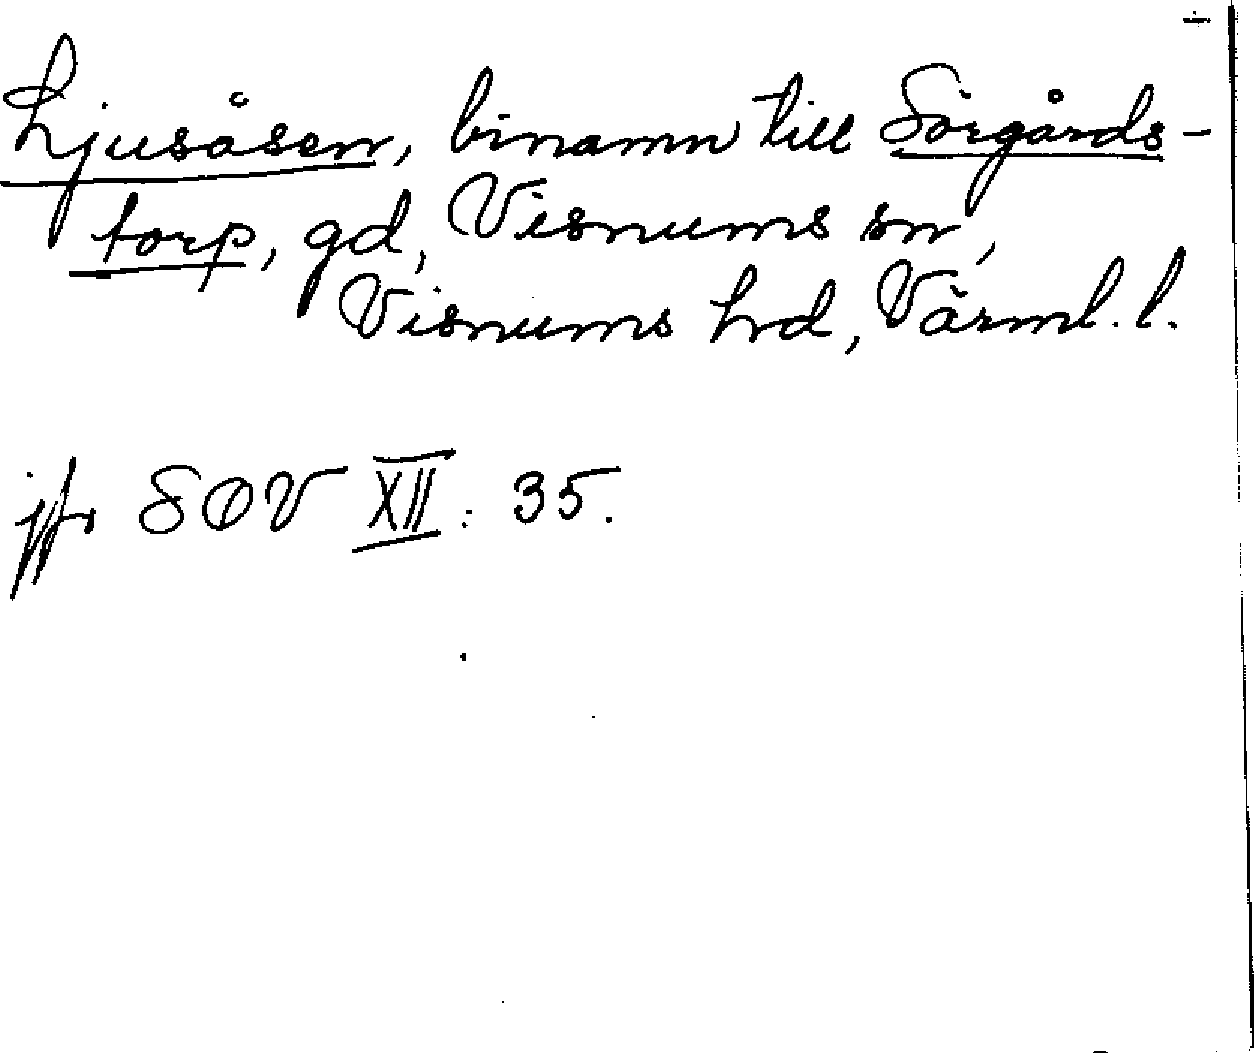 Ljusåsen, binamn till Sörgårds-
torp, gd, Visnums sn,
Visnums hrd, Värml. l.
jfr SOV XII: 35.